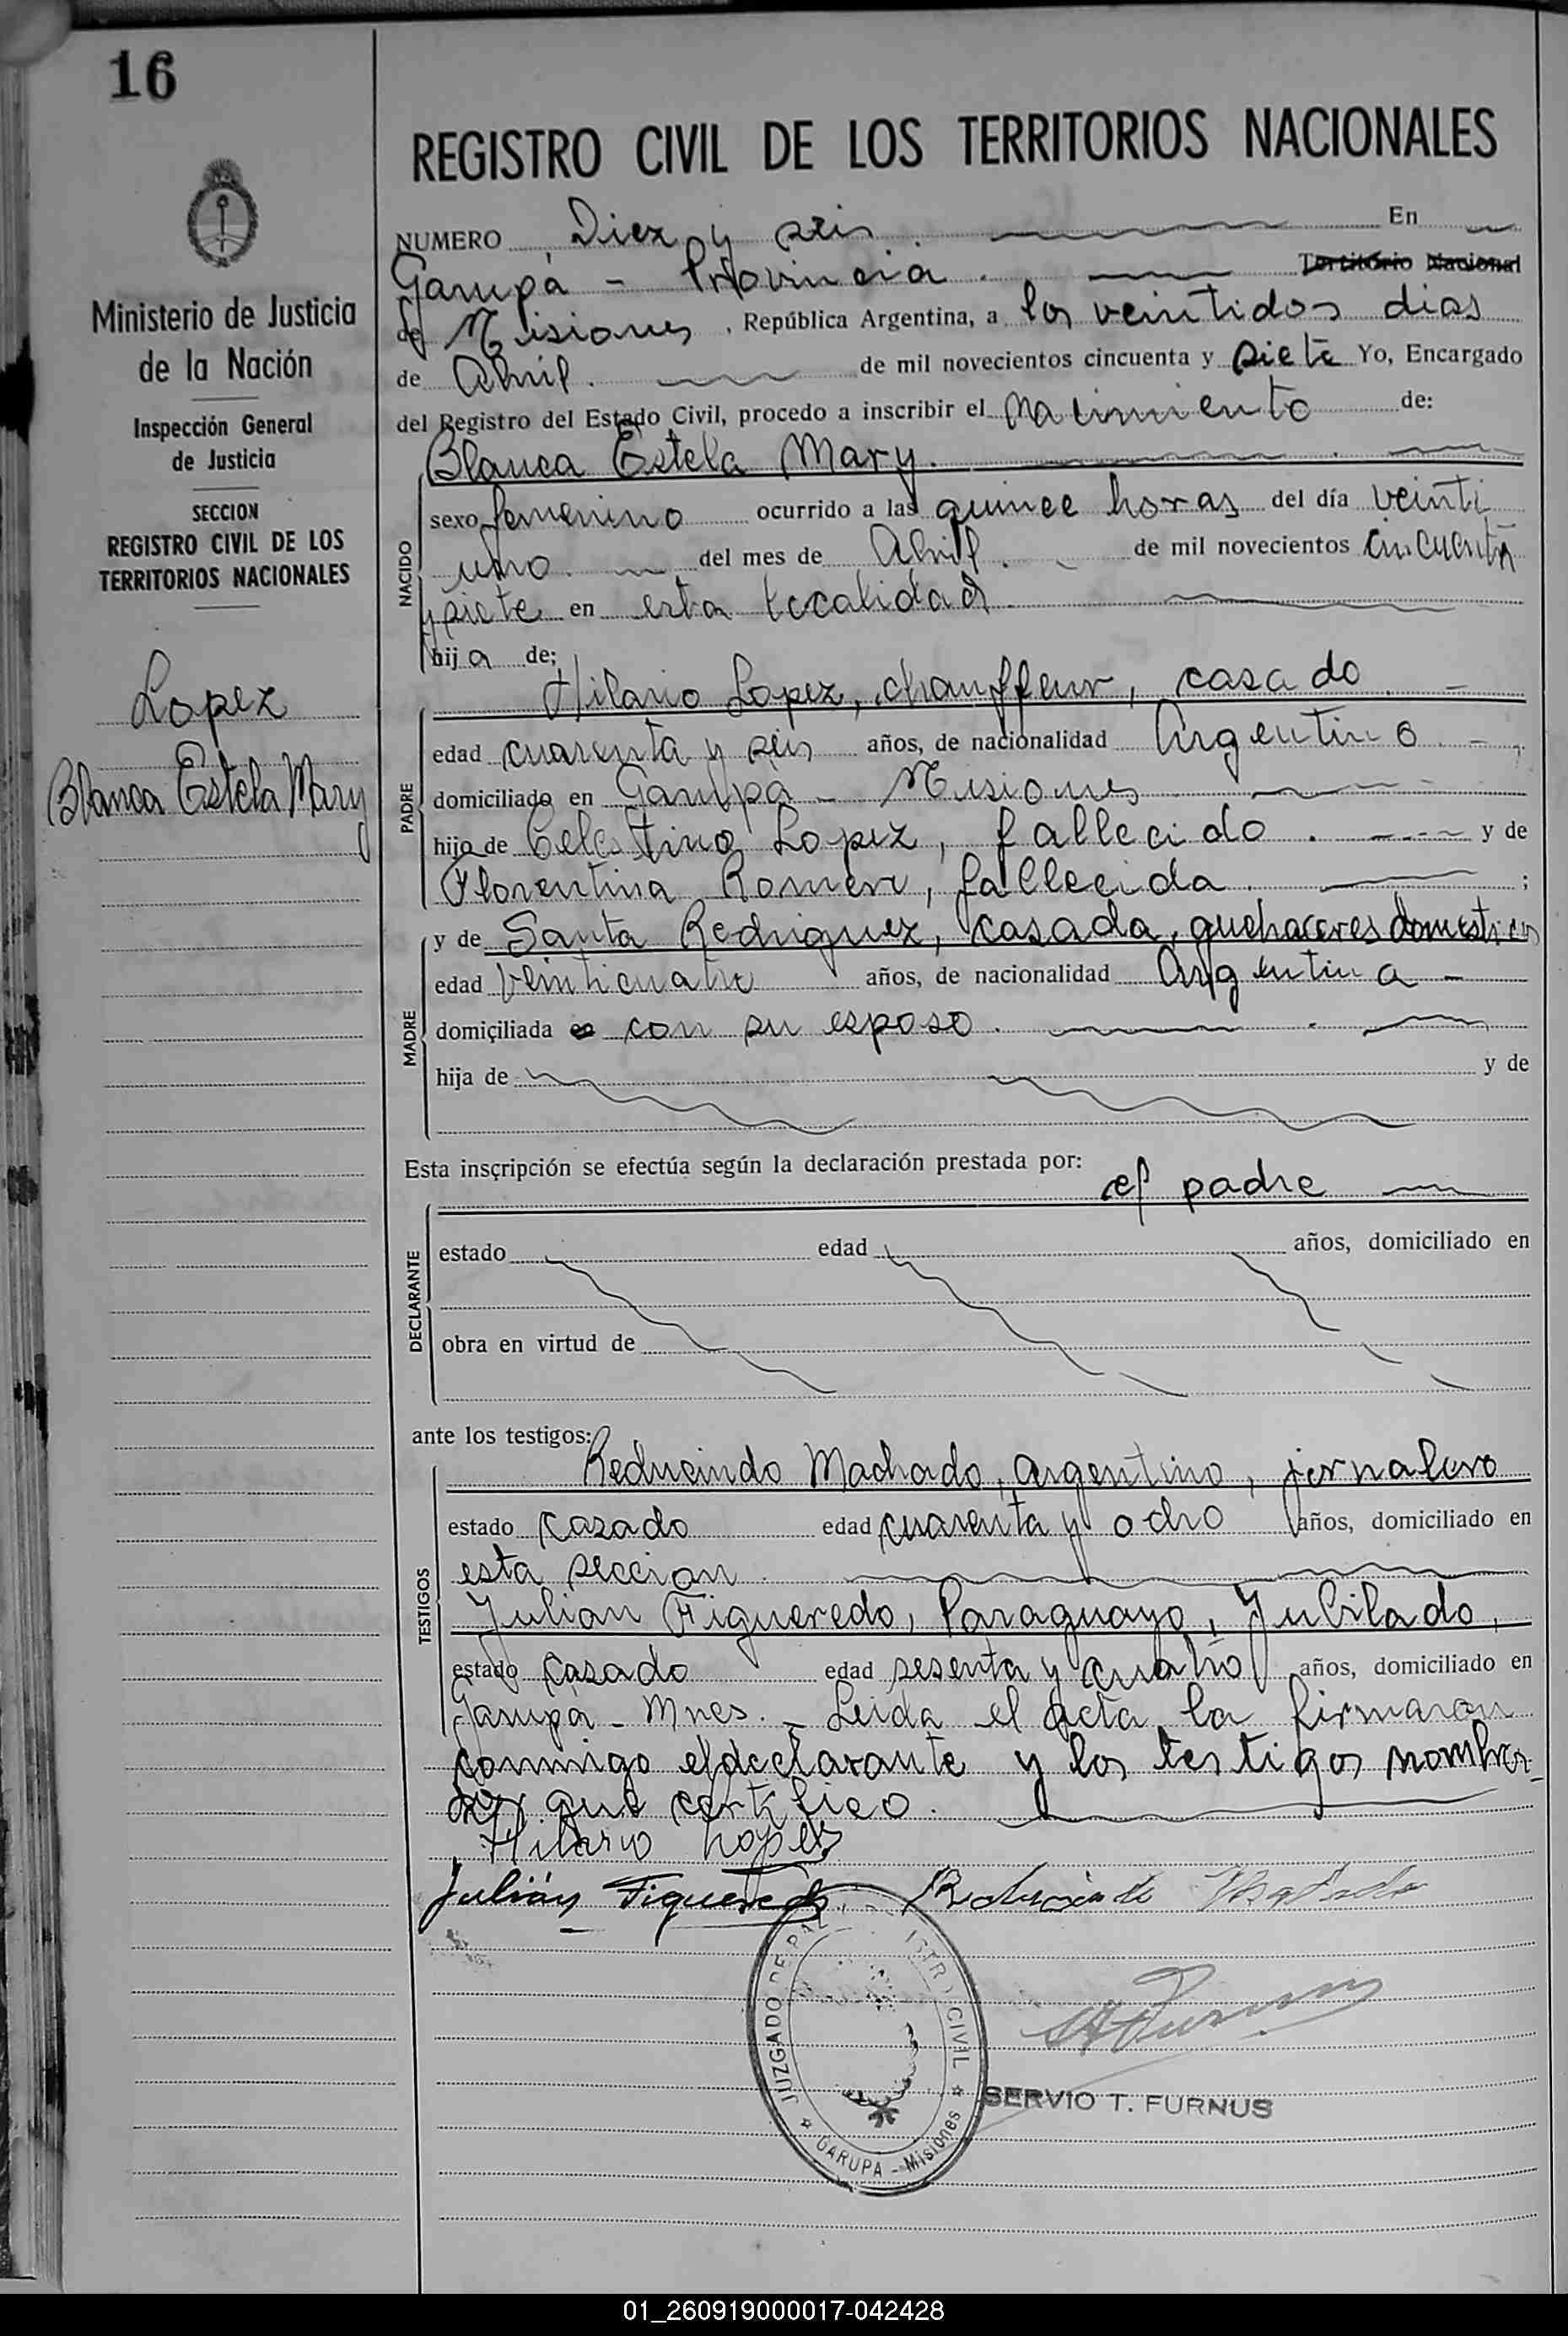 16
Ministerio de Justicia
de la Nación
Inspección General
de Justicia
SECCION
REGISTRO CIVIL DE LOS
TERRITORIOS NACIONALES
Lopez
Blanca Estela Mary
REGISTRO CIVIL DE LOS TERRITORIOS NACIONALES
NUMERO Diez y seis. En
Garupá - Provincia. Territorio Nacional
de Misiones, República Argentina, a los veintidos dias
de Abril. de mil novecientos cincuenta y siete Yo, Encargado
del Registro del Estado Civil, procedo a inscribir el nacimiento de:
Blanca Estela Mary.
NACIDO
sexo femenino ocurrido a las quince horas del día veinti
uno. del mes de Abril. de mil novecientos cincuenta
y siete en esta localidad.
hija de;
PADRE
Hilario Lopez, chauffeur, casado.
edad cuarenta y seis años, de nacionalidad Argentino -
domiciliado en Garupá - Misiones
hijo de Celestino Lopez, fallecido. y de
Florentina Romero, fallecida. ;
MADRE
y de Santa Rodriguez, casada, quehaceres domesticos
edad veinticuatro años, de nacionalidad Argentina -
domiciliada con su esposo.
hija de y de
Esta inscripción se efectúa según la declaración prestada por:
el padre
DECLARANTE
estado edad años, domiciliado en
obra en virtud de
ante los testigos:
TESTIGOS
Reducindo Machado, argentino, jornalero
estado casado edad cuarenta y ocho años, domiciliado en
esta seccion.
Julian Figueredo, Paraguayo, Jubilado,
estado casado edad sesenta y cuatro años, domiciliado en
Garupá - Mnes. - Leida el acta la firmaron
conmigo el declarante y los testigos nombra-
dos que certifico.
Hilario Lopez
Julián Figueredo Reducindo Machado
JUZGADO DE PAZ CIVIL
GARUPA - Misiones
SERVIO T. FURNUS
01_260919000017-042428